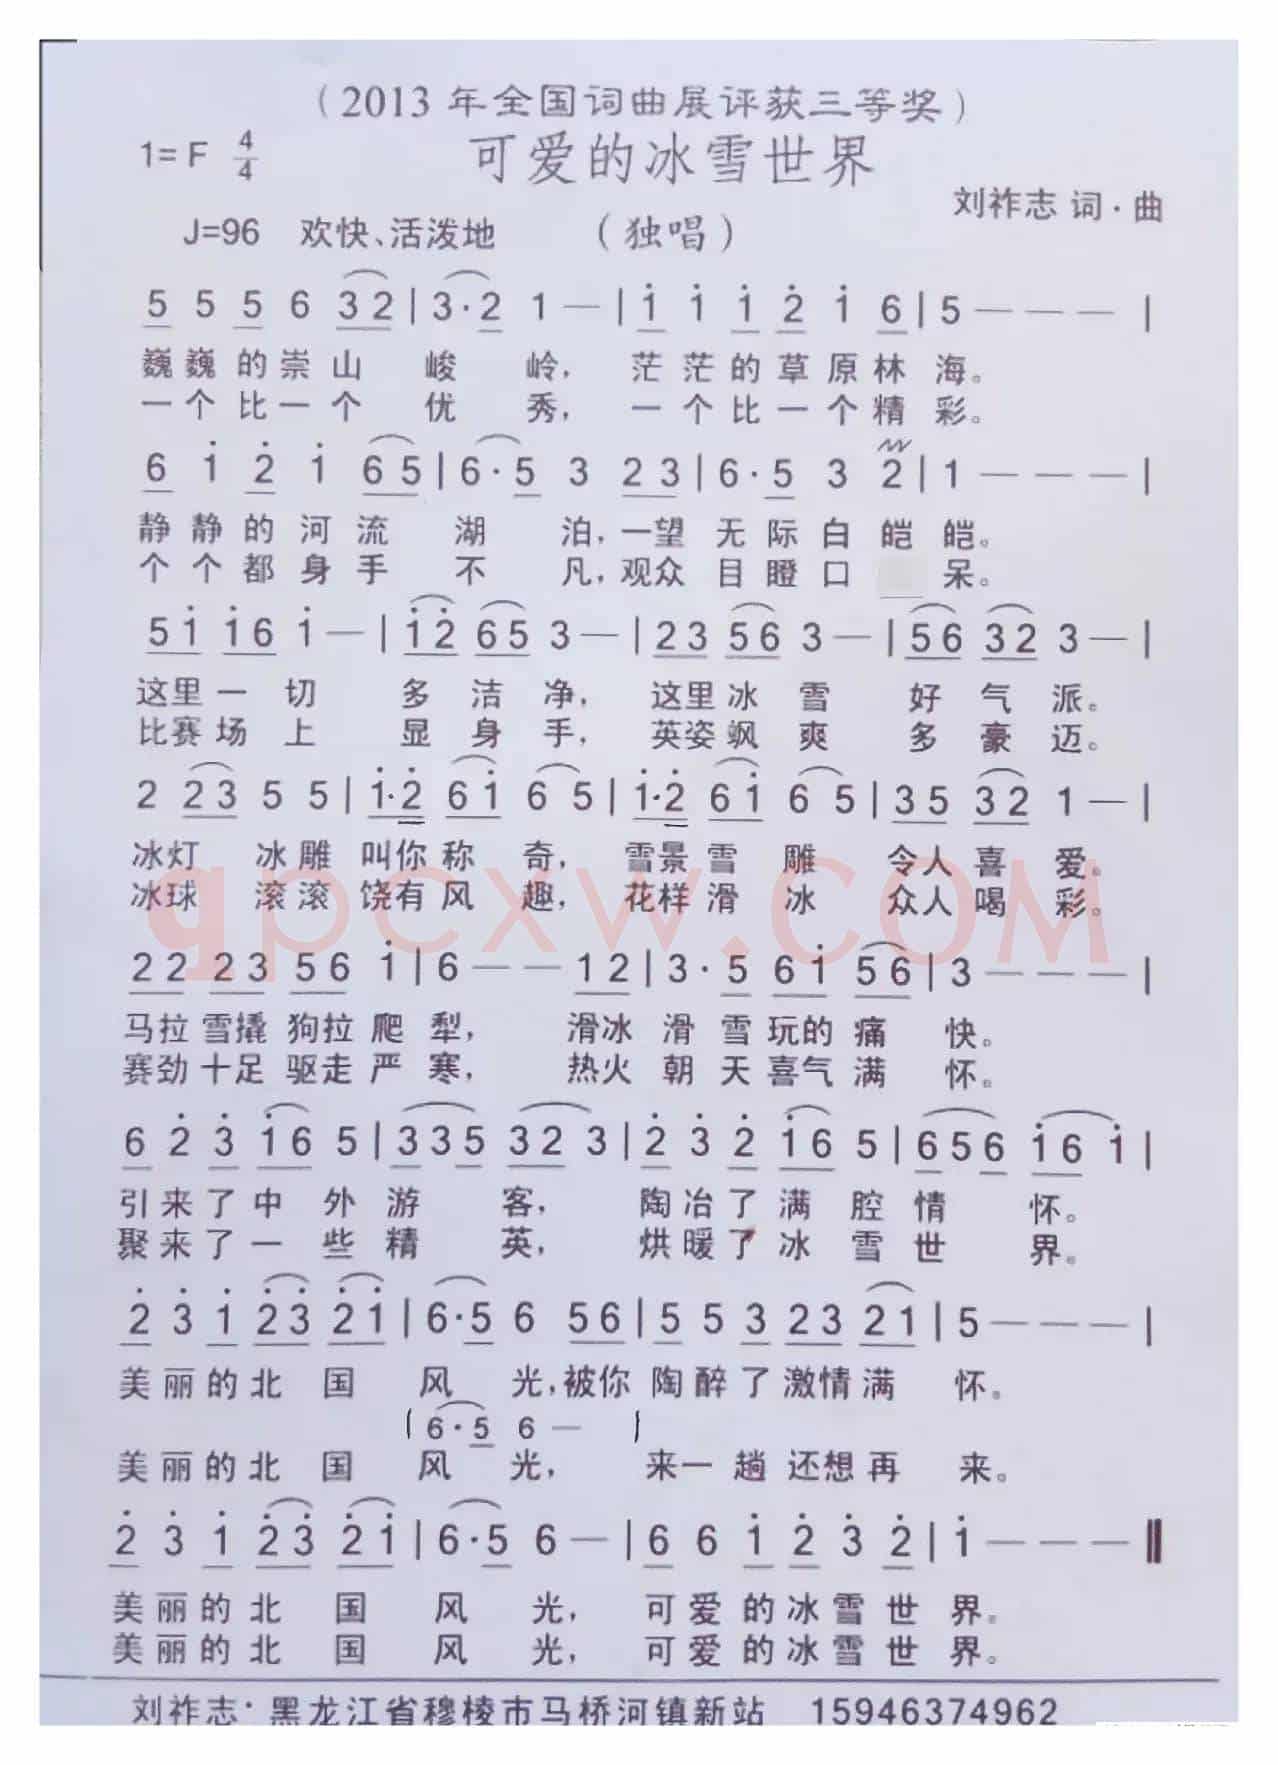 （2013 年全国词曲展评获三等奖）
1= F 4/4 可爱的冰雪世界
刘祚志 词·曲
J=96 欢快、活泼地 （独唱）
5 5 5 6 3 2 | 3·2 1 — | i i i 2 i 6 | 5 — — — |
巍巍的崇山 峻 岭， 茫茫的草原林 海。
一个比一个 优 秀， 一个比一个精 彩。
6 i 2 i 6 5 | 6·5 3 2 3 | 6·5 3 2 | 1 — — — |
静静的河流 湖 泊，一望 无际白皑 皑。
个个都身手 不 凡，观众 目瞪口 呆。
5 i i 6 i — | i 2 6 5 3 — | 2 3 5 6 3 — | 5 6 3 2 3 — |
这里一 切 多 洁 净， 这里冰 雪 好 气 派。
比赛场 上 显 身 手， 英姿飒 爽 多 豪 迈。
2 2 3 5 5 | i·2 6 i 6 5 | i·2 6 i 6 5 | 3 5 3 2 1 — |
冰灯 冰雕 叫你称 奇， 雪景雪 雕 令人喜 爱。
冰球 滚滚 饶有风 趣， 花样滑 冰 众人喝 彩。
2 2 2 3 5 6 i | 6 — — 1 2 | 3·5 6 i 5 6 | 3 — — — |
马拉雪撬狗拉爬 犁， 滑冰 滑雪玩的痛 快。
赛劲十足驱走严 寒， 热火 朝天喜气满 怀。
6 2 3 i 6 5 | 3 3 5 3 2 3 | 2 3 2 i 6 5 | 6 5 6 i 6 i |
引来了中 外游 客， 陶冶了满 腔情 怀。
聚来了一 些精 英， 烘暖了冰 雪世 界。
2 3 i 2 3 2 i | 6·5 6 5 6 | 5 5 3 2 3 2 1 | 5 — — — |
美丽的北 国 风 光，被你 陶醉了激情满 怀。
| 6·5 6 — |
美丽的北 国 风 光， 来一趟还想再 来。
2 3 i 2 3 2 i | 6·5 6 — | 6 6 i 2 3 2 | i — — — ‖
美丽的北 国 风 光， 可爱的冰雪世 界。
美丽的北 国 风 光， 可爱的冰雪世 界。
刘祚志：黑龙江省穆棱市马桥河镇新站 15946374962
qpcxw.com